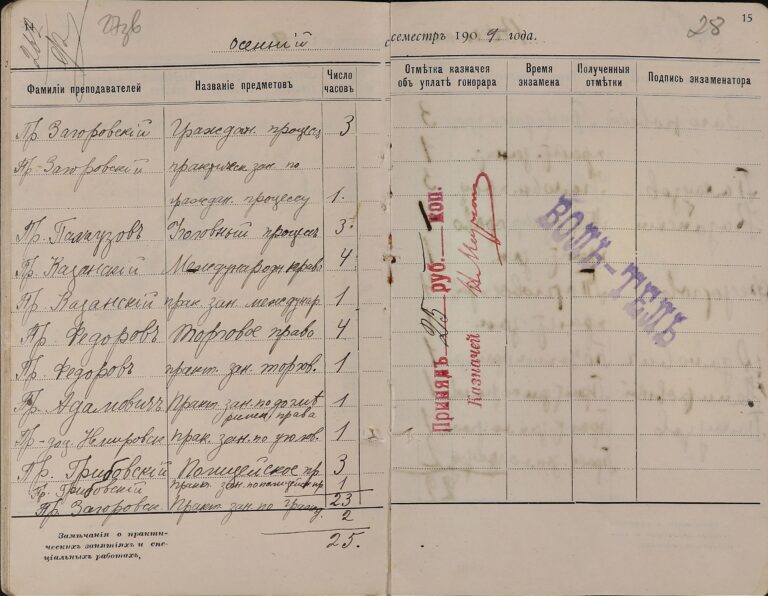 14
осенній
семестръ 1909 года.
28
15
Фамиліи преподавателей
Названіе предметовъ
Число часовъ
Отмѣтка казначея объ уплатѣ гонорара
Время экзамена
Полученныя отмѣтки
Подпись экзаменатора
Пр. Загоровскій Граждан. процессъ 3
Пр. Загоровскій практическ. зан. по
граждан. процессу 1.
Пр. Палаузовъ Уголовный процессъ 3.
Пр. Казанскій Международн. право 4
Пр. Казанскій прак. зан. междунар. 1
Пр. Федоровъ Торговое право 4
Пр. Федоровъ практ. зан. торгов. 1
Пр. Адамовичъ Практ. зан. по догмѣ 1
римск. права
Пр-доц. Немировск прак. зан. по уголов. 1
Пр. Грибовскій Полицейское пр. 3
Пр. Грибовскій практ. зан. полицейск. пр 1
23
Пр. Загоровск Практ. зан. по гражд. 2
25.
Принялъ 25 руб. — коп.
Казначей
ВОЛЬ-ТЕЛЬ
Замѣчанія о практи-
ческихъ занятіяхъ и спе-
ціальныхъ работахъ.